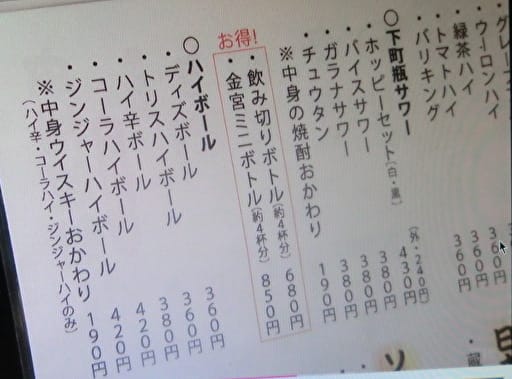 ・ウーロンハイ
・緑茶ハイ 360円
・トマトハイ 360円
・バリキング 360円
○下町瓶サワー
・ホッピーセット(白・黒) 430円
(外・240円)
・バイスサワー 380円
・ガラナサワー 380円
・チュウタン 380円
※中身の焼酎おかわり 190円
お得!
・飲み切りボトル(約4杯分) 680円
・金宮ミニボトル(約4杯分) 850円
○ハイボール
・ディズボール 360円
・トリスハイボール 360円
・ハイ辛ボール 380円
・コーラハイボール 420円
・ジンジャーハイボール 420円
※中身ウイスキーおかわり 190円
(ハイ辛・コーラハイ・ジンジャーハイのみ)